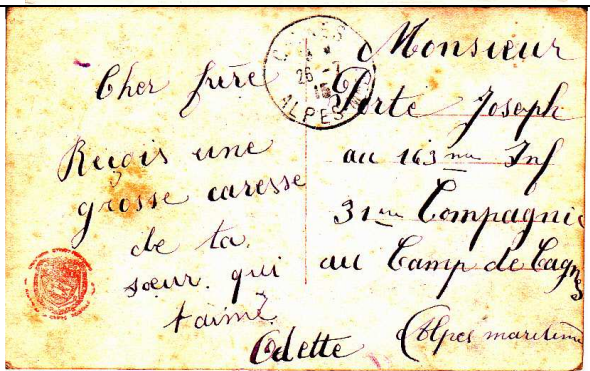 Cher frère
Reçois une
grosse caresse
de ta
sœur qui
t'aime
Odette
Monsieur
Porte Joseph
au 163me Inf
31me Compagnie
au Camp de Cagnes
(Alpes maritime
26 - 7
15
ALPES